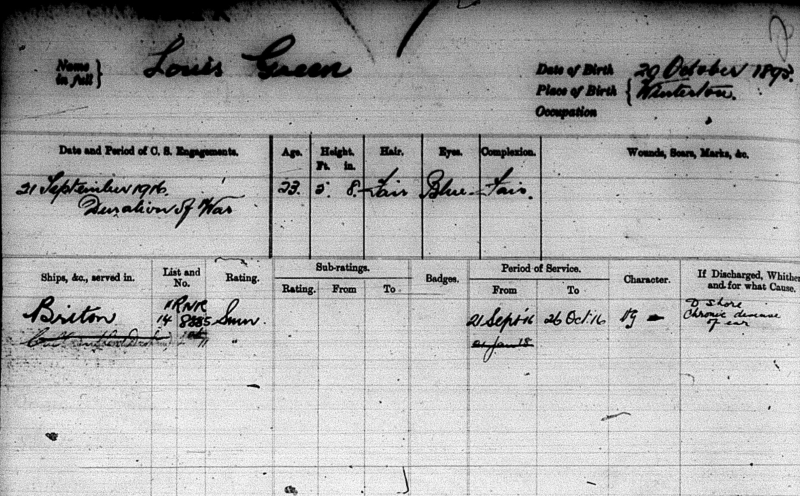 Name in full } Louis Green
Date of Birth 20 October 1893.
Place of Birth { Winterton.
Occupation
Date and Period of C. S. Engagements. Age. Height. Ft. in. Hair. Eyes. Complexion. Wounds, Scars, Marks, &c.
21 September 1916. 23. 5. 8. Fair Blue Fair.
Duration of War
Ships, &c., served in. List and No. Rating. Sub-ratings. Rating. From To Badges. Period of Service. From To Character. If Discharged, Whither and for what Cause.
Briton RNR 14 Smn. 21 Sept '16 26 Oct 16 VG D Shore
Chronic disease
of ear
" 21 Jan 18